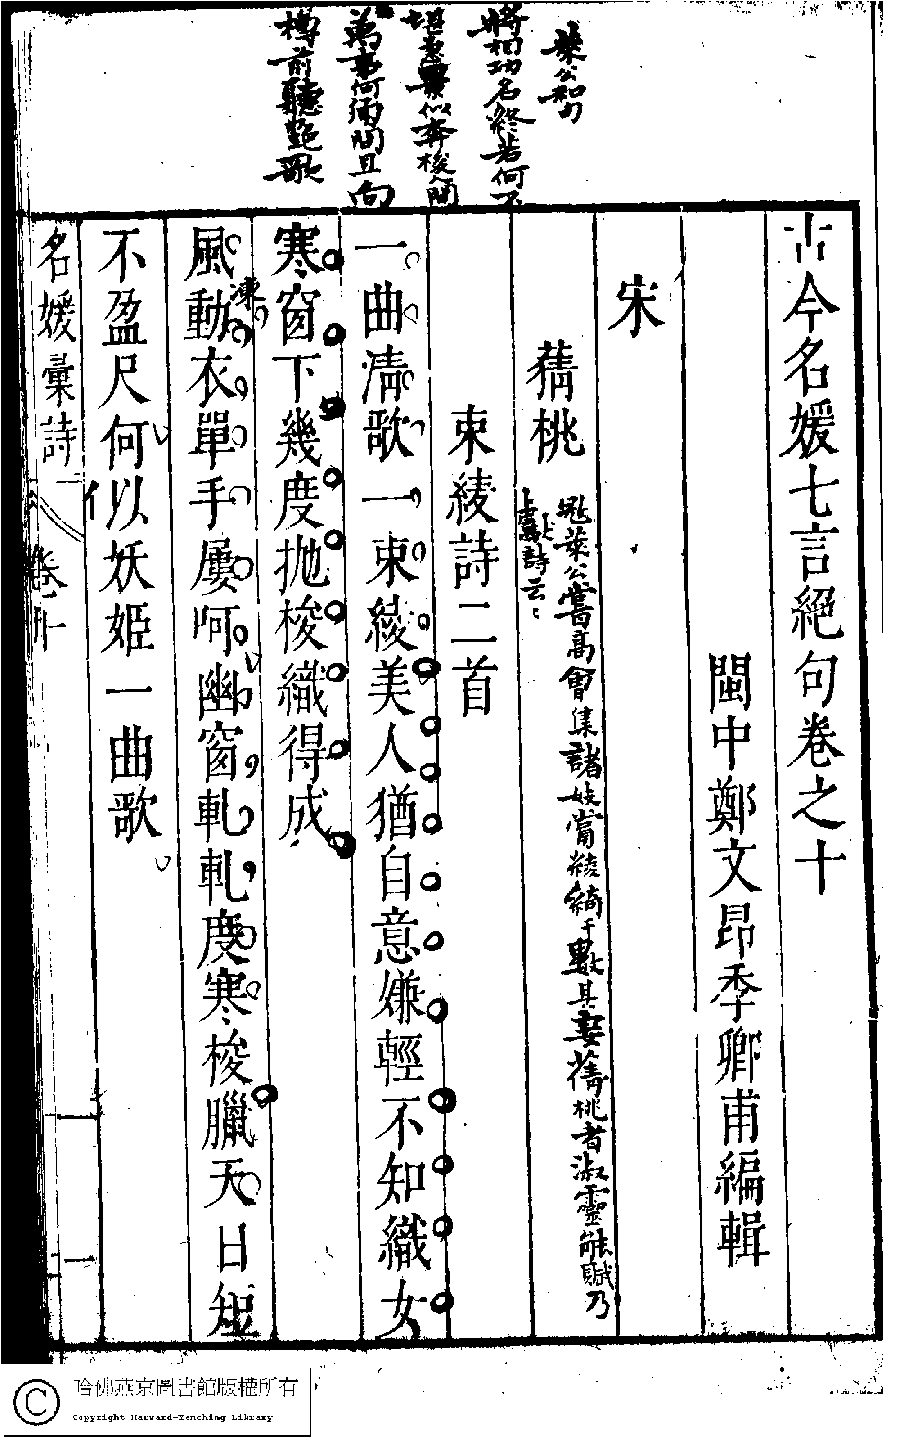 萊公和乃
將相功名終若何不
堪急景似奔梭人間
萬事何須問且向
樽前聽艶歌
古今名媛七言絕句卷之十
閩中鄭文昂季卿甫編輯
宋
蒨桃
寇萊公嘗高會集諸妓賞綾綺千數其妾蒨桃者淑靈能賦乃
上詩云
束綾詩二首
一曲清歌一束綾美人猶自意嫌輕不知織女
寒窗下幾度拋梭織得成
風動衣單手屢呵幽窗軋軋度寒梭臘天日短
凍
不盈尺何以妖姬一曲歌
似
名媛彙詩
卷十
一
哈佛燕京圖書館版權所有
Copyright Harvard-Yenching Library